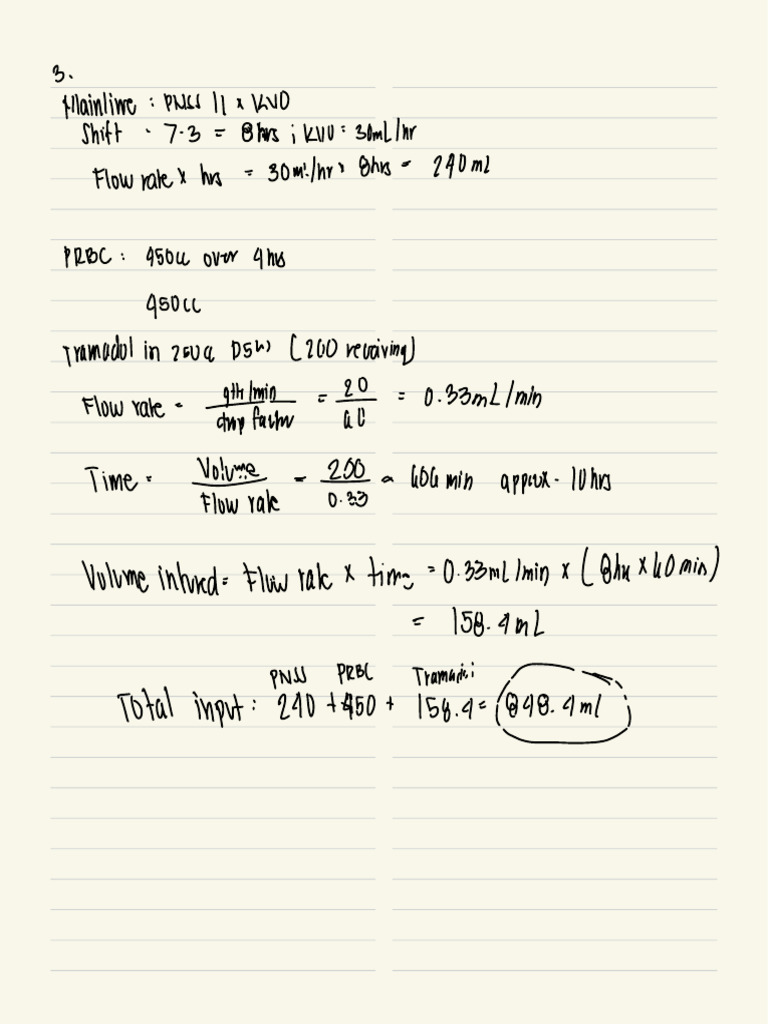 3.
Mainline : PNSS 1L x KVO
Shift · 7-3 = 8hrs ; KVO: 30mL/hr
Flow rate x hrs = 30ml/hr x 8hrs = 240 mL
PRBC : 450cc over 4hrs
450cc
Tramadol in 250cc D5W (200 receiving)
Flow rate = gtt/min / drop factor = 20 / 60 = 0.33mL/min
Time = Volume / Flow rate = 200 / 0.33 = 606 min approx. 10hrs
Volume infused = Flow rate x time = 0.33mL/min x (8hr x 60min)
= 158.4mL
PNSS PRBC Tramadol
Total input : 240 + 450 + 158.4 = 848.4ml